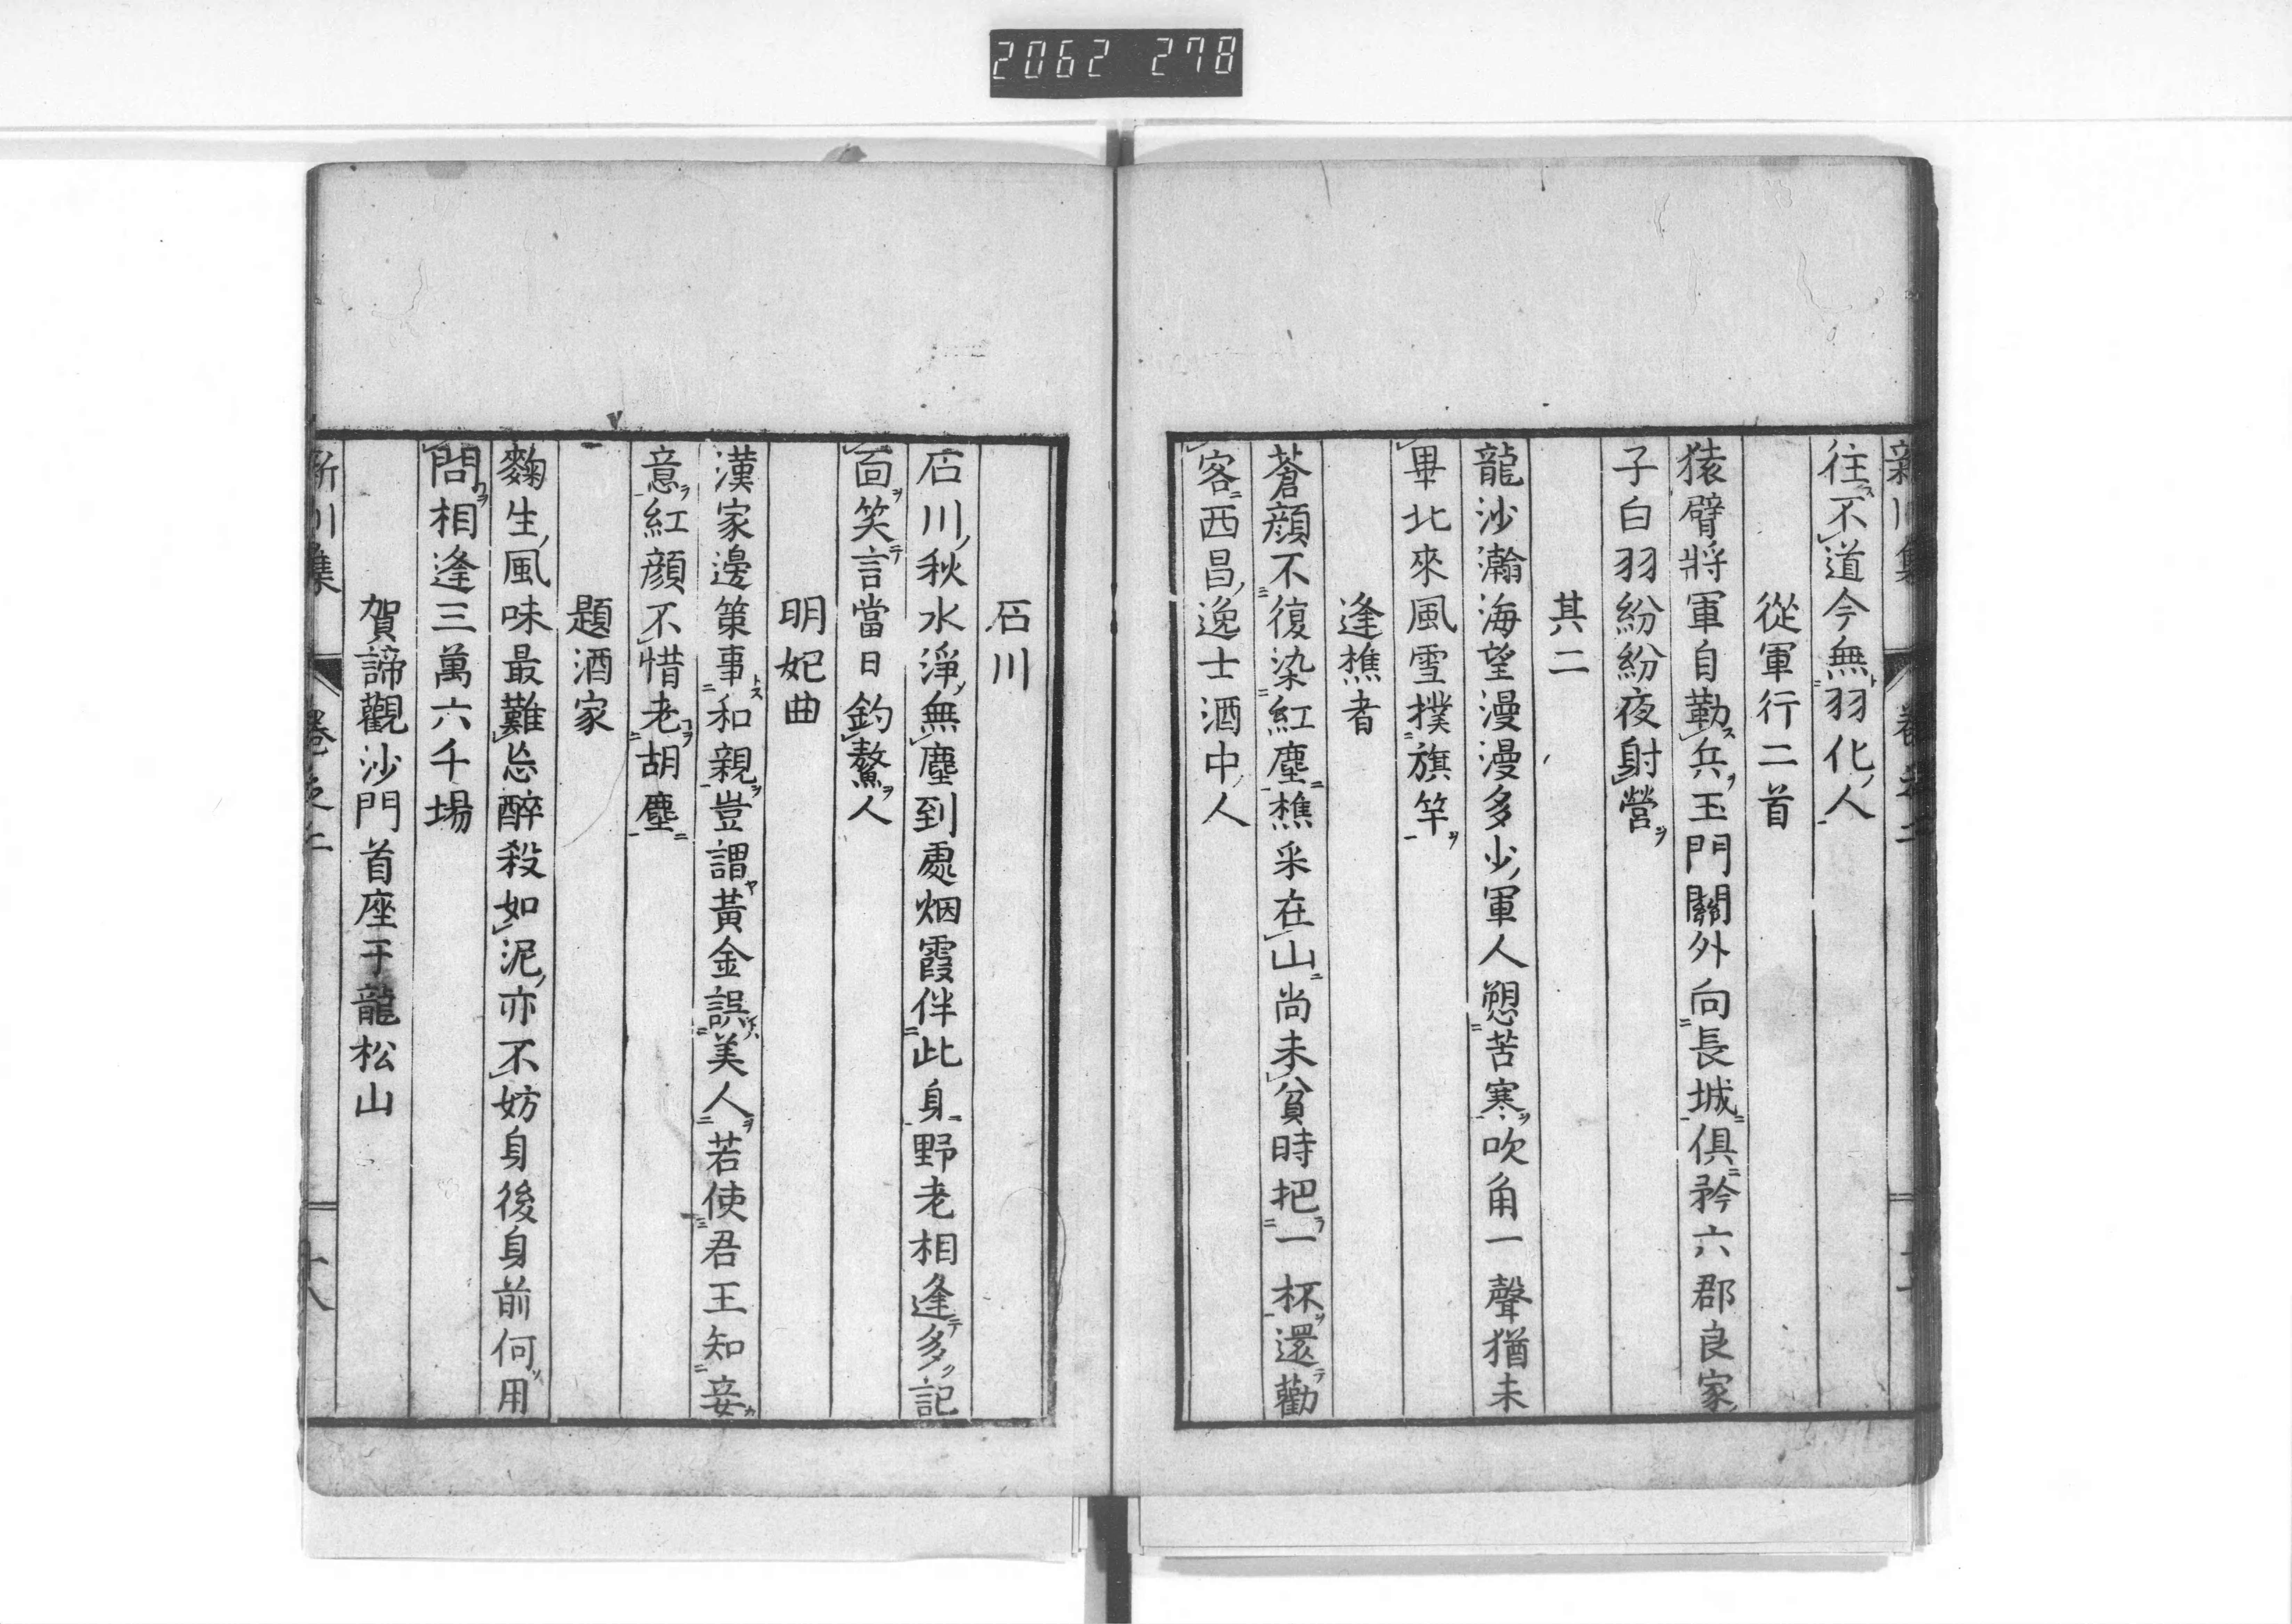 2062 278
往不道今無羽化人
從軍行二首
猿臂將軍自勒兵玉門關外向長城俱矜六郡良家
子白羽紛紛夜射營
其二
龍沙瀚海望漫漫多少軍人愬苦寒吹角一聲猶未
畢北來風雪撲旗竿
逢樵者
蒼顔不復染紅塵樵采在山尚未貧時把一杯還勸
客西昌逸士酒中人
石川
石川秋水淨無塵到處烟霞伴此身野老相逢多記
面笑言當日釣鰲人
明妃曲
漢家邊策事和親豈謂黃金誤美人若使君王知妾
意紅顔不惜老胡塵
題酒家
麴生風味最難忘醉殺如泥亦不妨身後身前何用
問相逢三萬六千場
賀諦觀沙門首座于龍松山